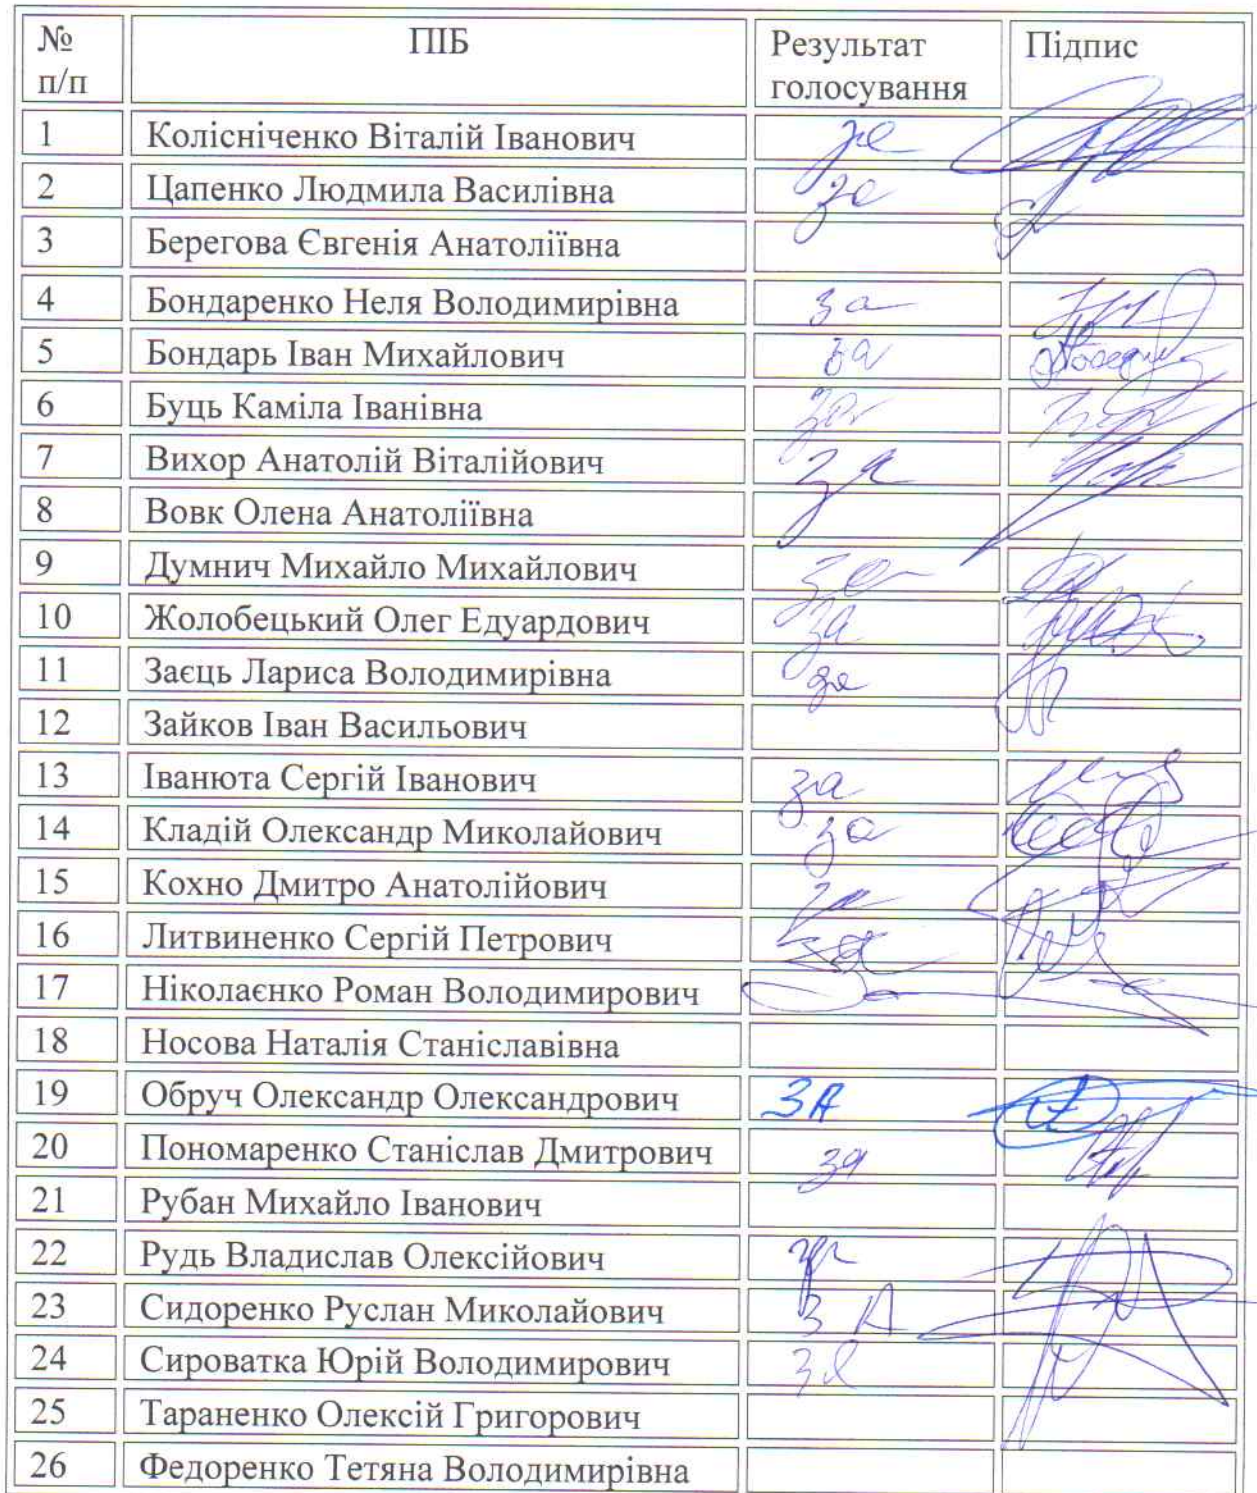 № п/п ПІБ Результат голосування Підпис
1 Колісніченко Віталій Іванович за
2 Цапенко Людмила Василівна за
3 Берегова Євгенія Анатоліївна
4 Бондаренко Неля Володимирівна за
5 Бондарь Іван Михайлович за
6 Буць Каміла Іванівна за
7 Вихор Анатолій Віталійович за
8 Вовк Олена Анатоліївна
9 Думнич Михайло Михайлович за
10 Жолобецький Олег Едуардович за
11 Заєць Лариса Володимирівна за
12 Зайков Іван Васильович
13 Іванюта Сергій Іванович за
14 Кладій Олександр Миколайович за
15 Кохно Дмитро Анатолійович за
16 Литвиненко Сергій Петрович за
17 Ніколаєнко Роман Володимирович
18 Носова Наталія Станіславівна
19 Обруч Олександр Олександрович ЗА
20 Пономаренко Станіслав Дмитрович за
21 Рубан Михайло Іванович
22 Рудь Владислав Олексійович за
23 Сидоренко Руслан Миколайович ЗА
24 Сироватка Юрій Володимирович за
25 Тараненко Олексій Григорович
26 Федоренко Тетяна Володимирівна